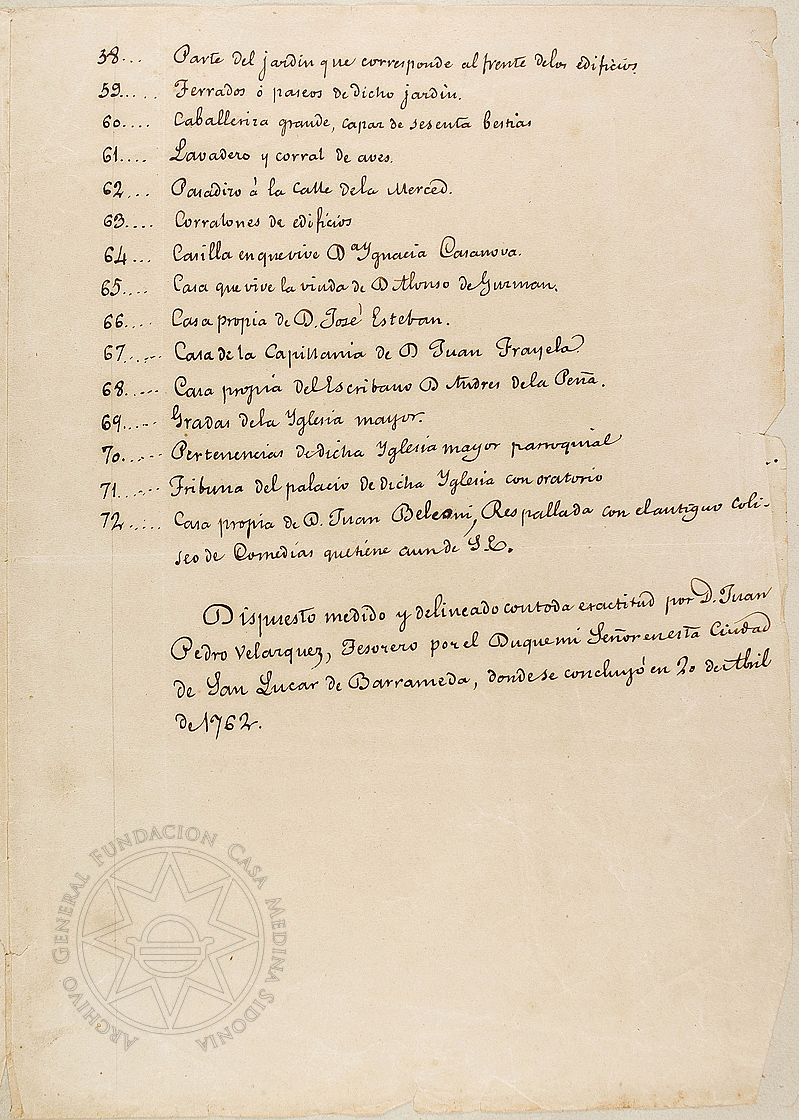 58... Parte del jardin que corresponde al frente delos edificios.
59..... Terrados ó paseos de dicho jardin.
60.... Caballeriza grande, capaz de sesenta bestias
61.... Lavadero y corral de aves.
62.... Pasadizo à la Calle dela Merced.
63.... Corralones de edificios
64... Casilla enque vive Dª Ygnacia Casanova.
65.... Casa que vive la viuda de D Alonso de Guzman.
66.... Casa propia de D. José Esteban.
67..... Casa de la Capillania de D Juan Frayela.
68..... Casa propia del Escribano D Andres de la Peña.
69..... Gradas dela Yglesia mayor.
70..... Pertenencias de dicha Yglesia mayor parroquial
71..... Tribuna del palacio de dicha Yglesia con oratorio
72..... Casa propia de D. Juan Beleoni, Respallada con el antiguo Coli-
seo de Comedias que tiene aun de S.E.
Dispuesto medido y delineado con toda exactitud por D. Juan
Pedro Velazquez, Tesorero por el Duque mi Señor en esta Ciudad
de San Lucar de Barrameda, donde se concluyó en 20 de Abril
de 1762.
ARCHIVO GENERAL FUNDACION CASA MEDINA SIDONIA